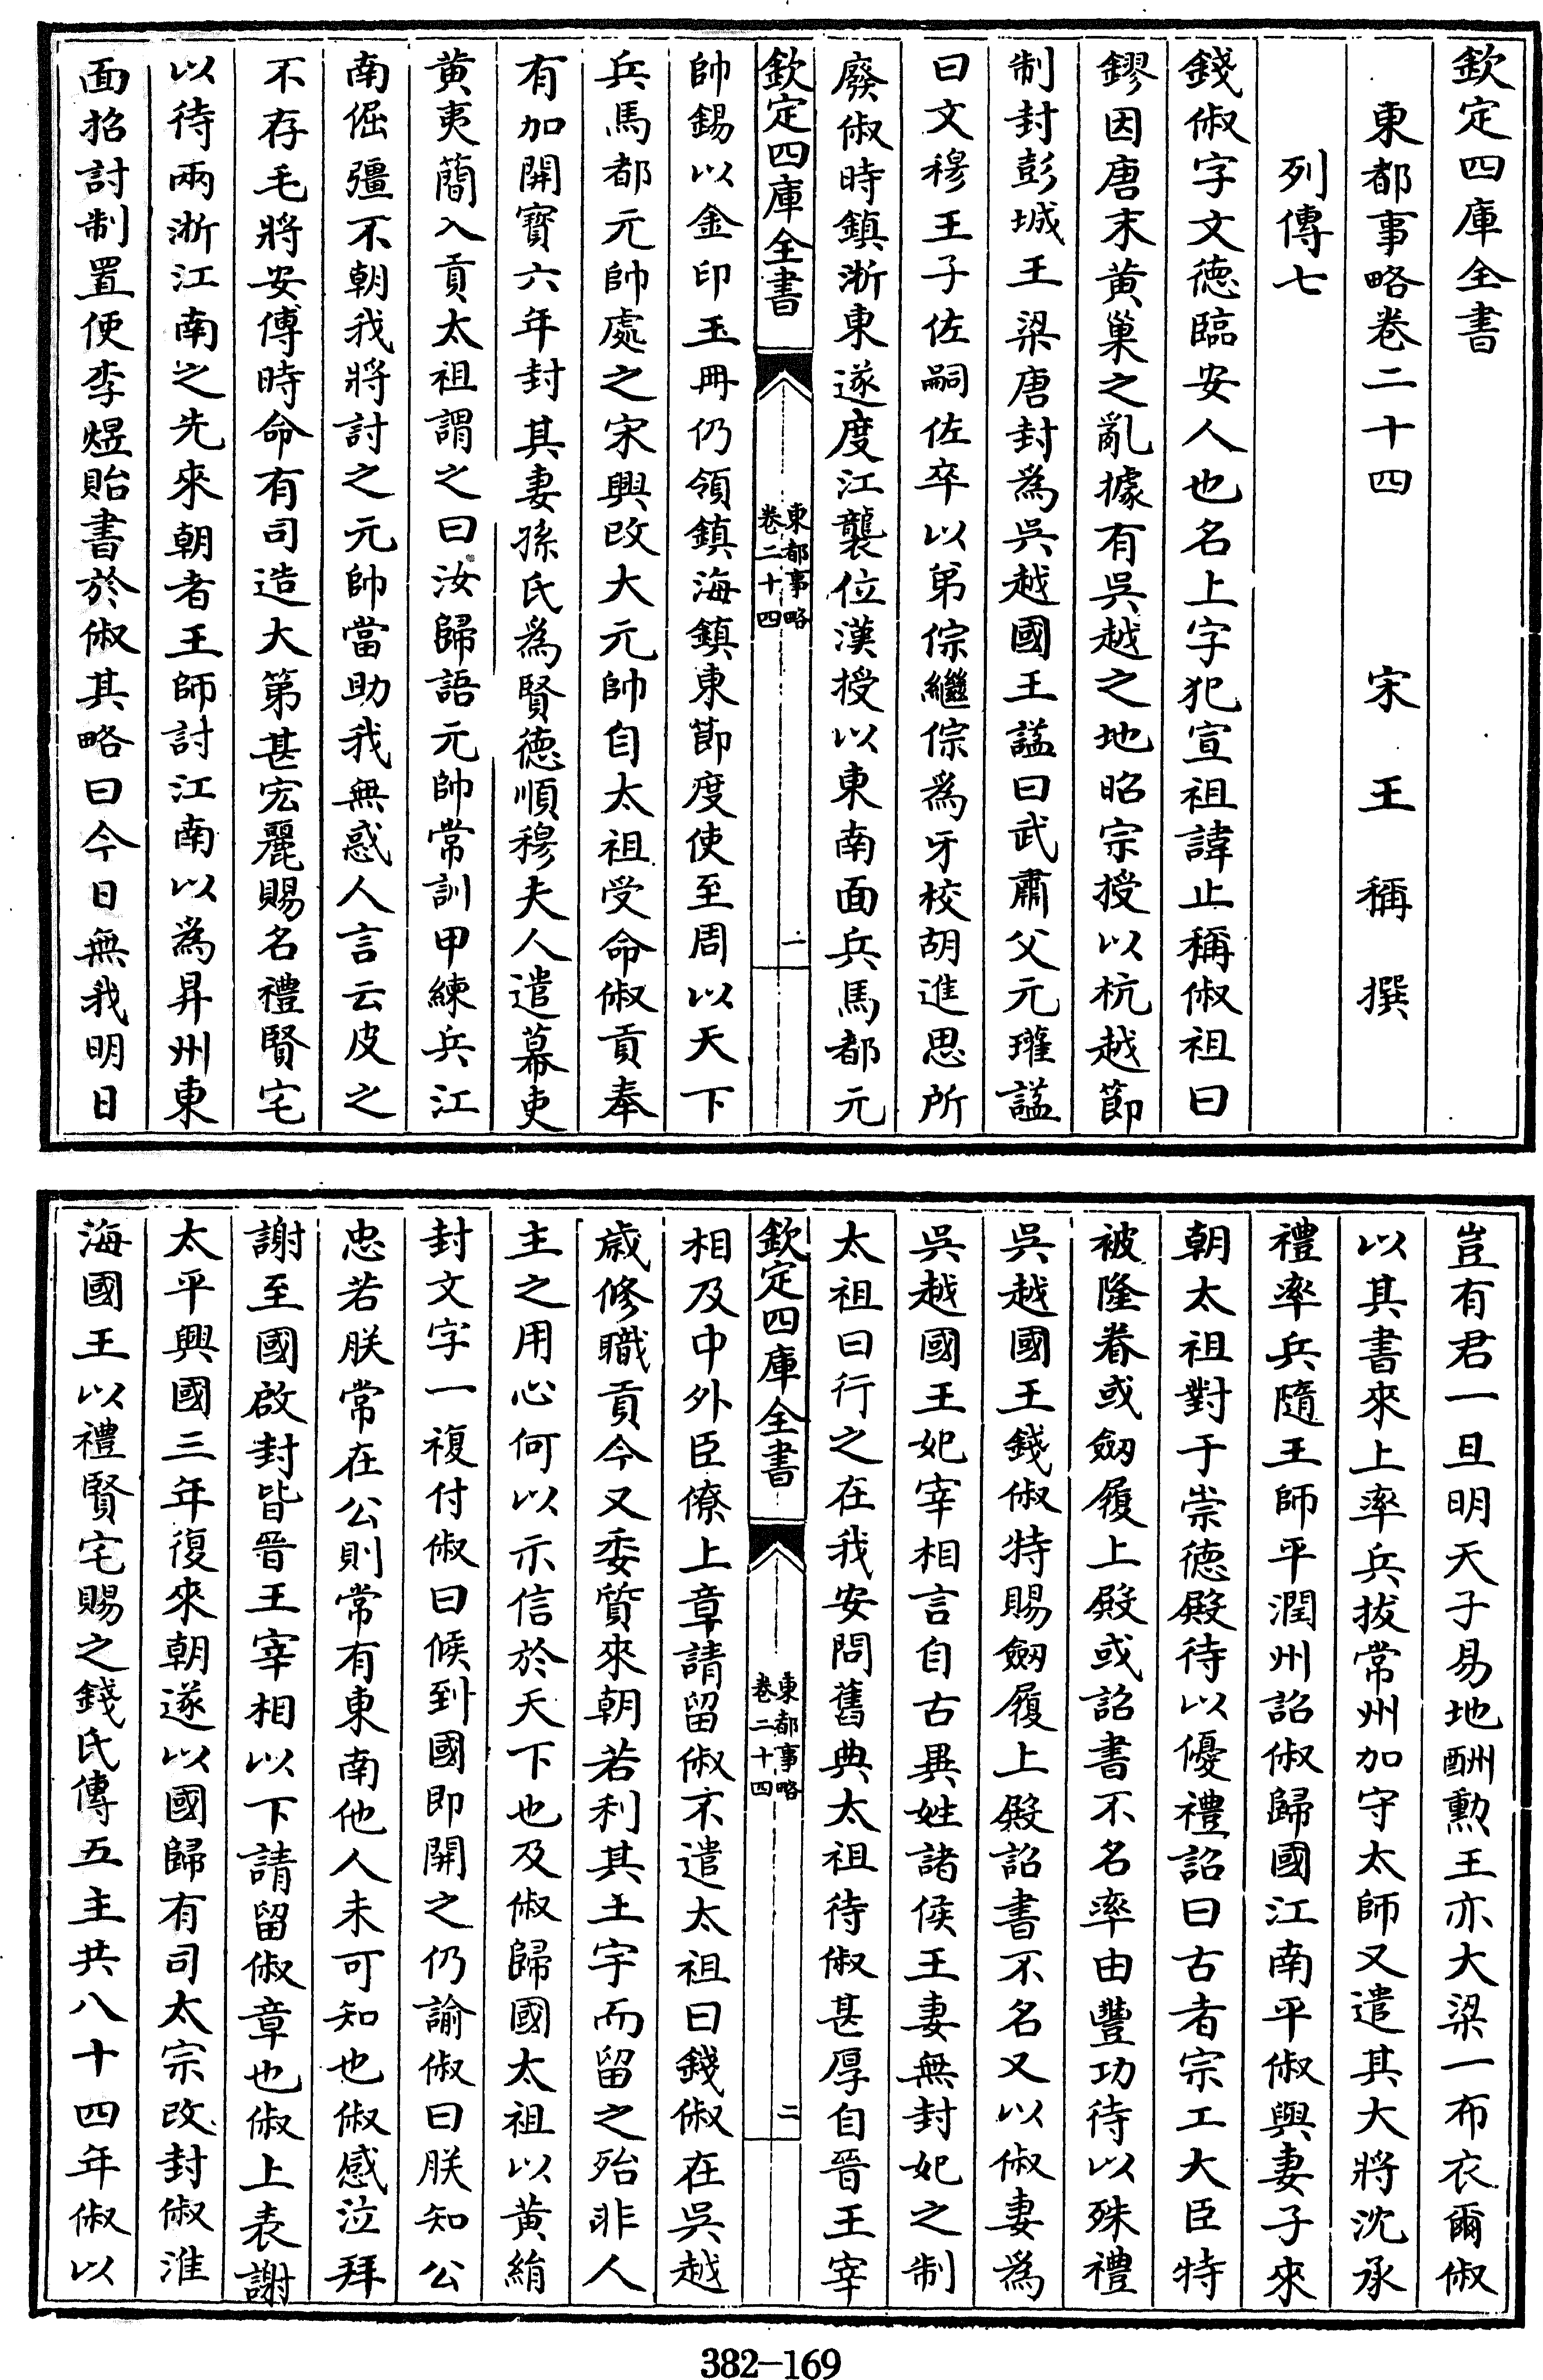 欽定四庫全書
東都事略卷二十四　宋　王　稱　撰
列傳七
錢俶字文德臨安人也名上字犯宣祖諱止稱俶祖曰
鏐因唐末黃巢之亂據有吳越之地昭宗授以杭越節
制封彭城王梁唐封為吳越國王諡曰武肅父元瓘諡
曰文穆王子佐嗣佐卒以弟倧繼倧為牙校胡進思所
廢俶時鎮浙東遂度江襲位漢授以東南面兵馬都元
欽定四庫全書
東都事略
卷二十四
一
帥錫以金印玉冊仍領鎮海鎮東節度使至周以天下
兵馬都元帥處之宋興改大元帥自太祖受命俶貢奉
有加開寶六年封其妻孫氏為賢德順穆夫人遣幕吏
黃夷簡入貢太祖謂之曰汝歸語元帥常訓甲練兵江
南倔彊不朝我將討之元帥當助我無惑人言云皮之
不存毛將安傅時命有司造大第甚宏麗賜名禮賢宅
以待兩浙江南之先來朝者王師討江南以為昇州東
面招討制置使李煜貽書於俶其略曰今日無我明日
豈有君一旦明天子易地酬勲王亦大梁一布衣爾俶
以其書來上率兵拔常州加守太師又遣其大將沈承
禮率兵隨王師平潤州詔俶歸國江南平俶與妻子來
朝太祖對于崇德殿待以優禮詔曰古者宗工大臣特
被隆眷或劒履上殿或詔書不名率由豐功待以殊禮
吳越國王錢俶特賜劒履上殿詔書不名又以俶妻為
吳越國王妃宰相言自古異姓諸侯王妻無封妃之制
太祖曰行之在我安問舊典太祖待俶甚厚自晉王宰
欽定四庫全書
東都事略
卷二十四
二
相及中外臣僚上章請留俶不遣太祖曰錢俶在吳越
歲修職貢今又委質來朝若利其土宇而留之殆非人
主之用心何以示信於天下也及俶歸國太祖以黃絹
封文字一複付俶曰候到國即開之仍諭俶曰朕知公
忠若朕常在公則常有東南他人未可知也俶感泣拜
謝至國啟封皆晉王宰相以下請留俶章也俶上表謝
太平興國三年復來朝遂以國歸有司太宗改封俶淮
海國王以禮賢宅賜之錢氏傳五主共八十四年俶以
382-169